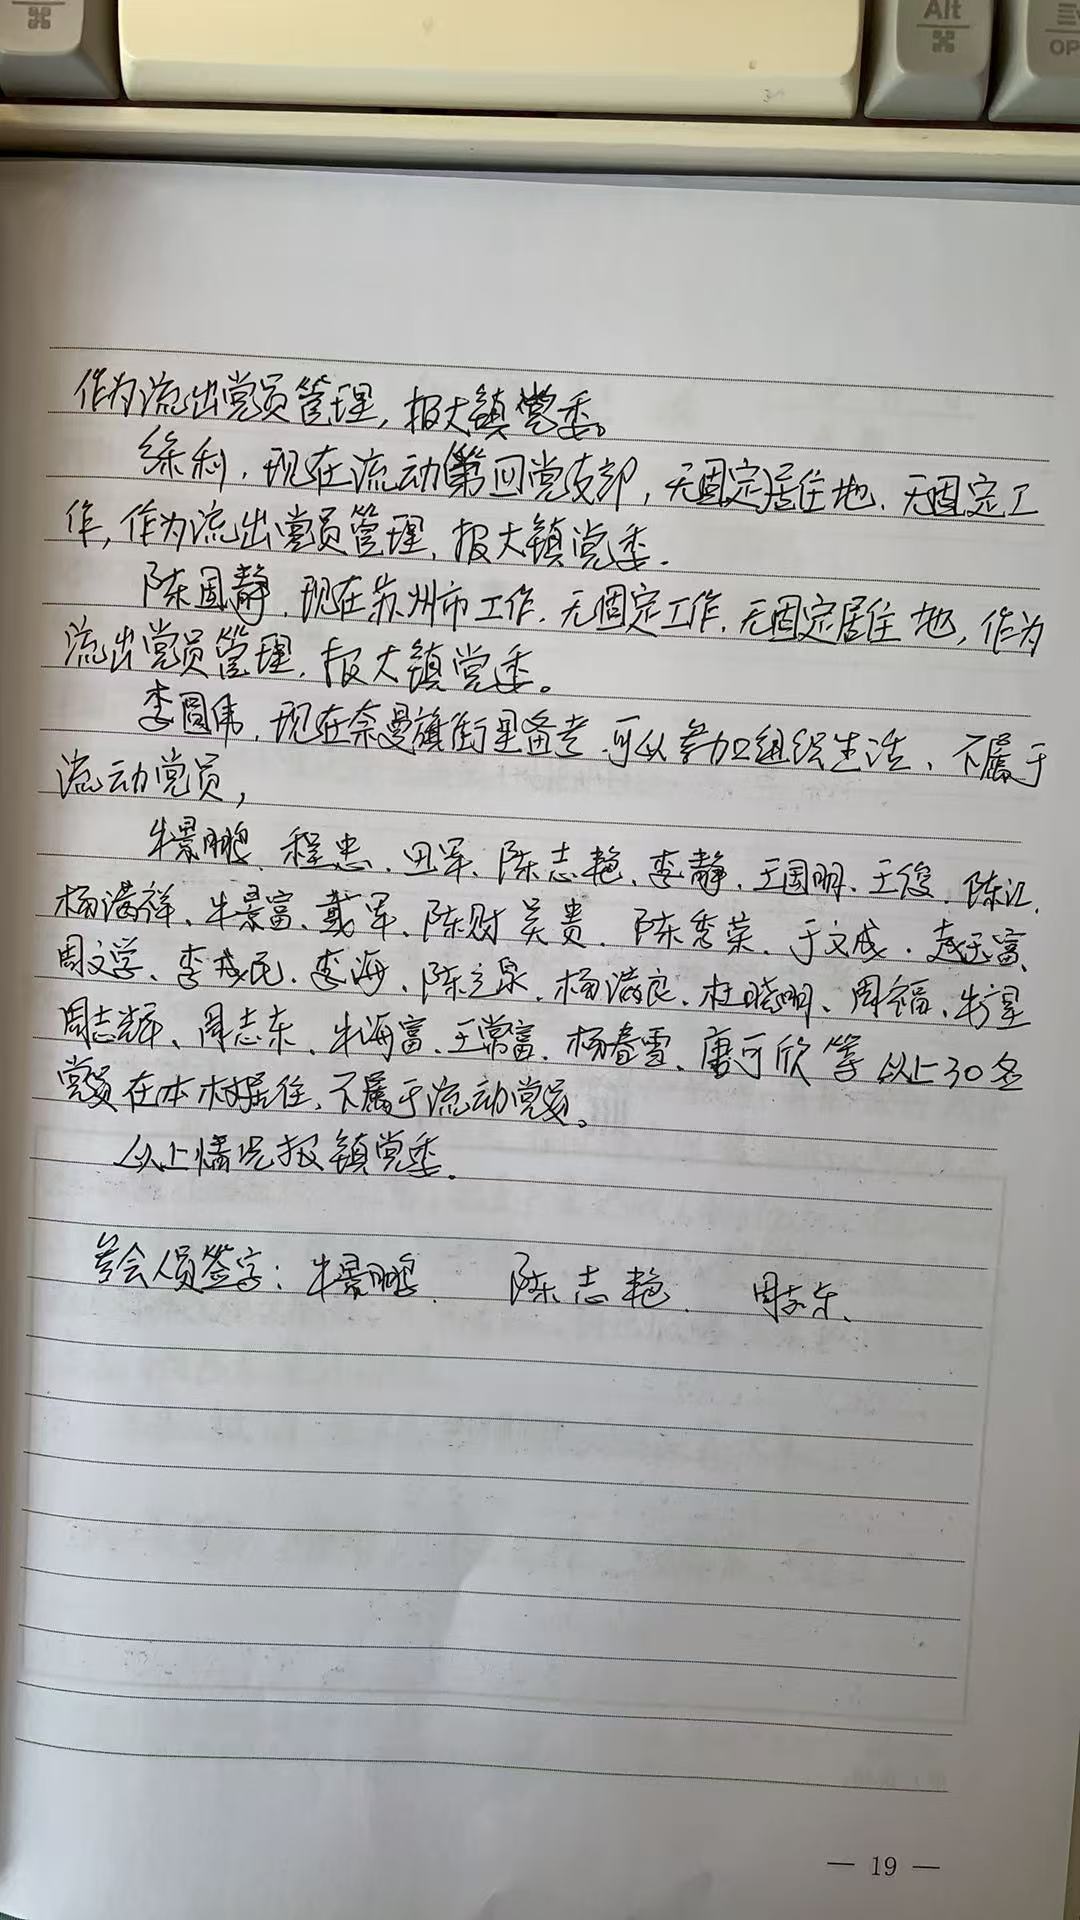 ⌘
Alt
⌘
OP
作为流出党员管理，报大镇党委。
利，现在流动第回党支部，无固定居住地、无固定工
作，作为流出党员管理，报大镇党委.
陈国静，现在苏州市工作，无固定工作，无固定居住地，作为
流出党员管理，报大镇党委。
李圆伟，现在奈曼旗街里备考，可以参加组织生活、不属于
流动党员，
牛景鹏、程忠、田军、陈志艳、李静、王国明、王俊、陈江、
杨满祥、牛景富、戴军、陈财、吴贵、陈秀荣、于文成、赵玉富、
周文学、李成民、李海、陈立泉、杨满良、杜晓明、周福、牛星
周志辉、周志东、牛海富、王常富、杨春雪、唐可欣等以上30名
党员在本村居住，不属于流动党员。
以上情况报镇党委.
参会人员签字：牛景鹏 陈志艳 周志东、
— 19 —